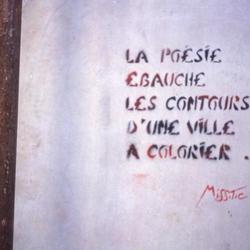 LA POÉSIE
EBAUCHE
LES CONTOURS
D'UNE VILLE
A COLORIER.
MISS.TIC